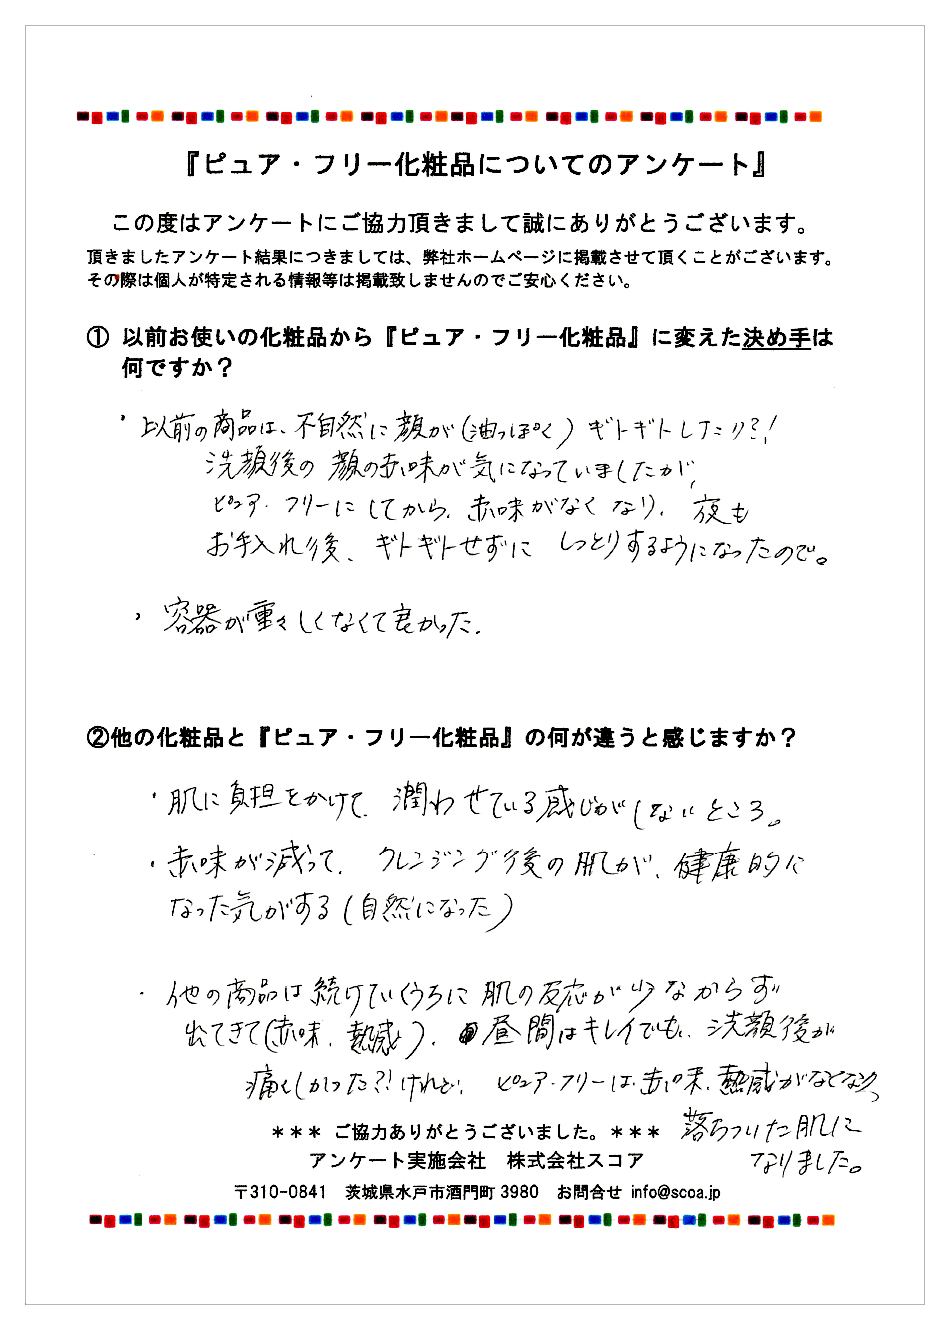 『ピュア・フリー化粧品についてのアンケート』
この度はアンケートにご協力頂きまして誠にありがとうございます。
頂きましたアンケート結果につきましては、弊社ホームページに掲載させて頂くことがございます。
その際は個人が特定される情報等は掲載致しませんのでご安心ください。
① 以前お使いの化粧品から『ピュア・フリー化粧品』に変えた決め手は
何ですか？
・以前の商品は、不自然に顔が(油っぽく)ギトギトしたり?!
洗顔後の顔の赤味が気になっていましたが、
ピュア・フリーにしてから、赤味がなくなり、夜も
お手入れ後、ギトギトせずにしっとりするようになったので。
・容器が重々しくなくて良かった。
②他の化粧品と『ピュア・フリー化粧品』の何が違うと感じますか？
・肌に負担をかけて、潤わせている感じがしないところ。
・赤味が減って、クレンジング後の肌が、健康的に
なった気がする(自然になった)
・他の商品は続けていくうちに肌の反応が少なからず
出てきて(赤味、熱感と)、昼間はキレイでも、洗顔後が
痛々しかった?!けれど、ピュア・フリーは、赤味、熱感がなくなり、
落ちついた肌に
なりました。
＊＊＊ ご協力ありがとうございました。＊＊＊
アンケート実施会社　株式会社スコア
〒310-0841　茨城県水戸市酒門町3980　お問合せ info@scoa.jp